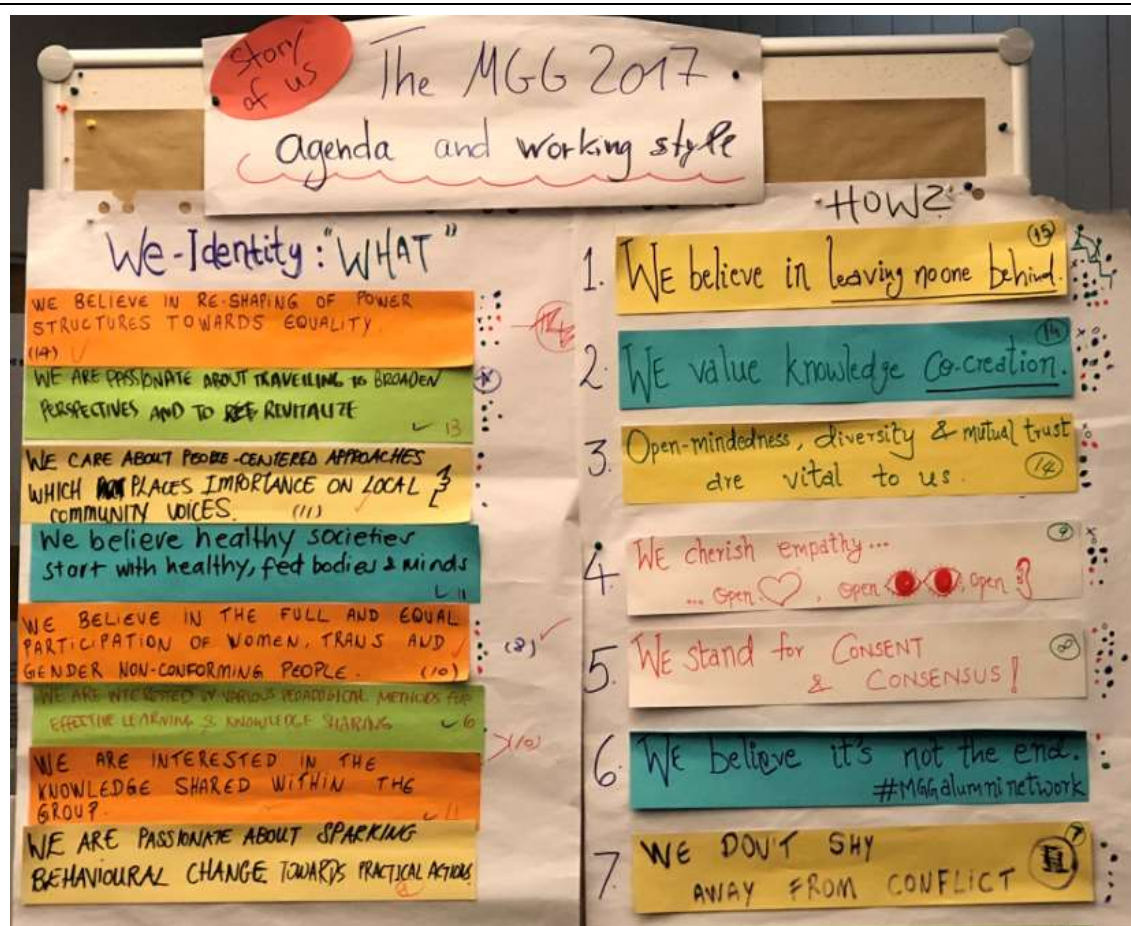 Story
of us
The MGG 2017
agenda and working style
We-Identity: "WHAT"
WE BELIEVE IN RE-SHAPING OF POWER
STRUCTURES TOWARDS EQUALITY.
(14)
WE ARE PASSIONATE ABOUT TRAVELLING TO BROADEN
PERSPECTIVES AND TO REVITALIZE
13
WE CARE ABOUT PEOPLE-CENTERED APPROACHES
WHICH PLACES IMPORTANCE ON LOCAL
COMMUNITY VOICES. (11)
We believe healthy societies
start with healthy, fed bodies & minds
11
WE BELIEVE IN THE FULL AND EQUAL
PARTICIPATION OF WOMEN, TRANS AND
GENDER NON-CONFORMING PEOPLE. (10)
(8)
WE ARE INTERESTED IN VARIOUS PEDAGOGICAL METHODS FOR
EFFECTIVE LEARNING & KNOWLEDGE SHARING 6
(10)
WE ARE INTERESTED IN THE
KNOWLEDGE SHARED WITHIN THE
GROUP. 11
WE ARE PASSIONATE ABOUT SPARKING
BEHAVIOURAL CHANGE TOWARDS PRACTICAL ACTIONS
HOW?
1. WE believe in leaving no one behind. 15
2. WE value knowledge Co-creation. 14
3. Open-mindedness, diversity & mutual trust
are vital to us. 14
4. WE cherish empathy... 9
... open , open , open
5. WE stand for CONSENT 8
& CONSENSUS!
6. WE believe it's not the end.
#MGGalumninetwork
7. WE DON'T SHY 7
AWAY FROM CONFLICT